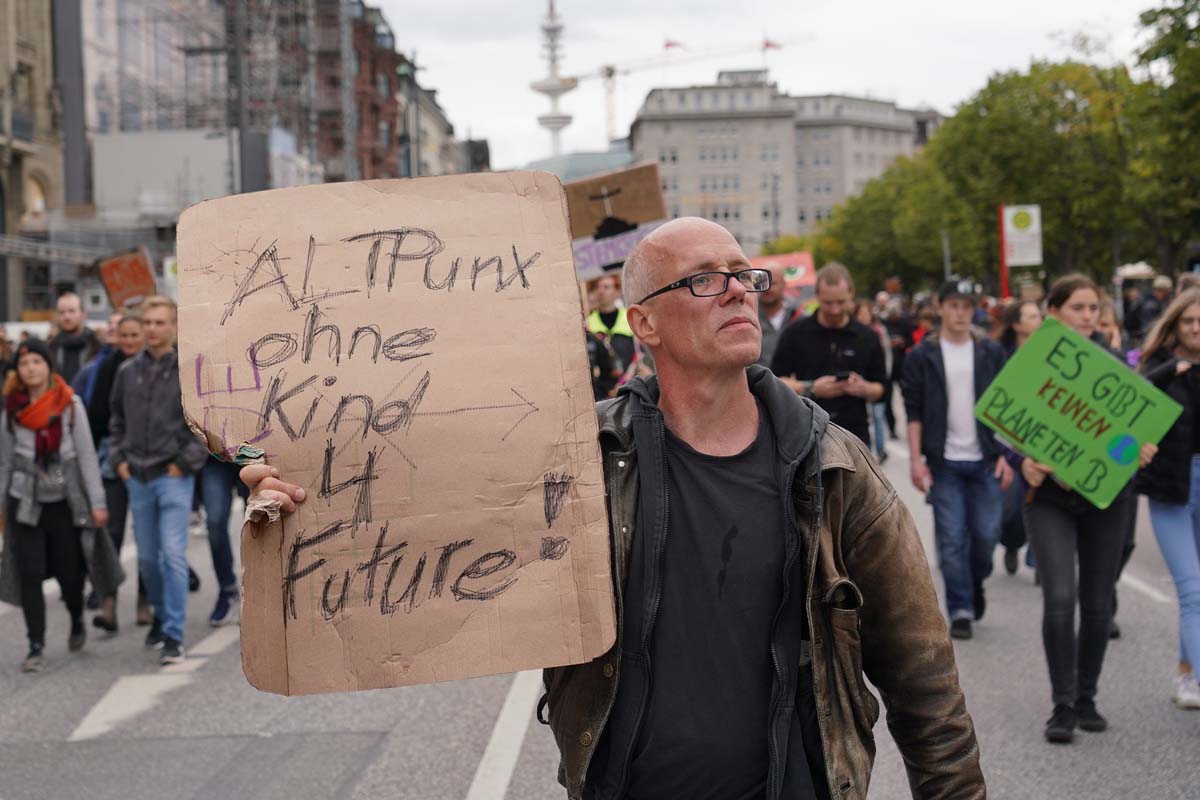 ALTPunx
ohne
Kind
4
Future!
ES GiBT
KEINEN
PLANETEN B